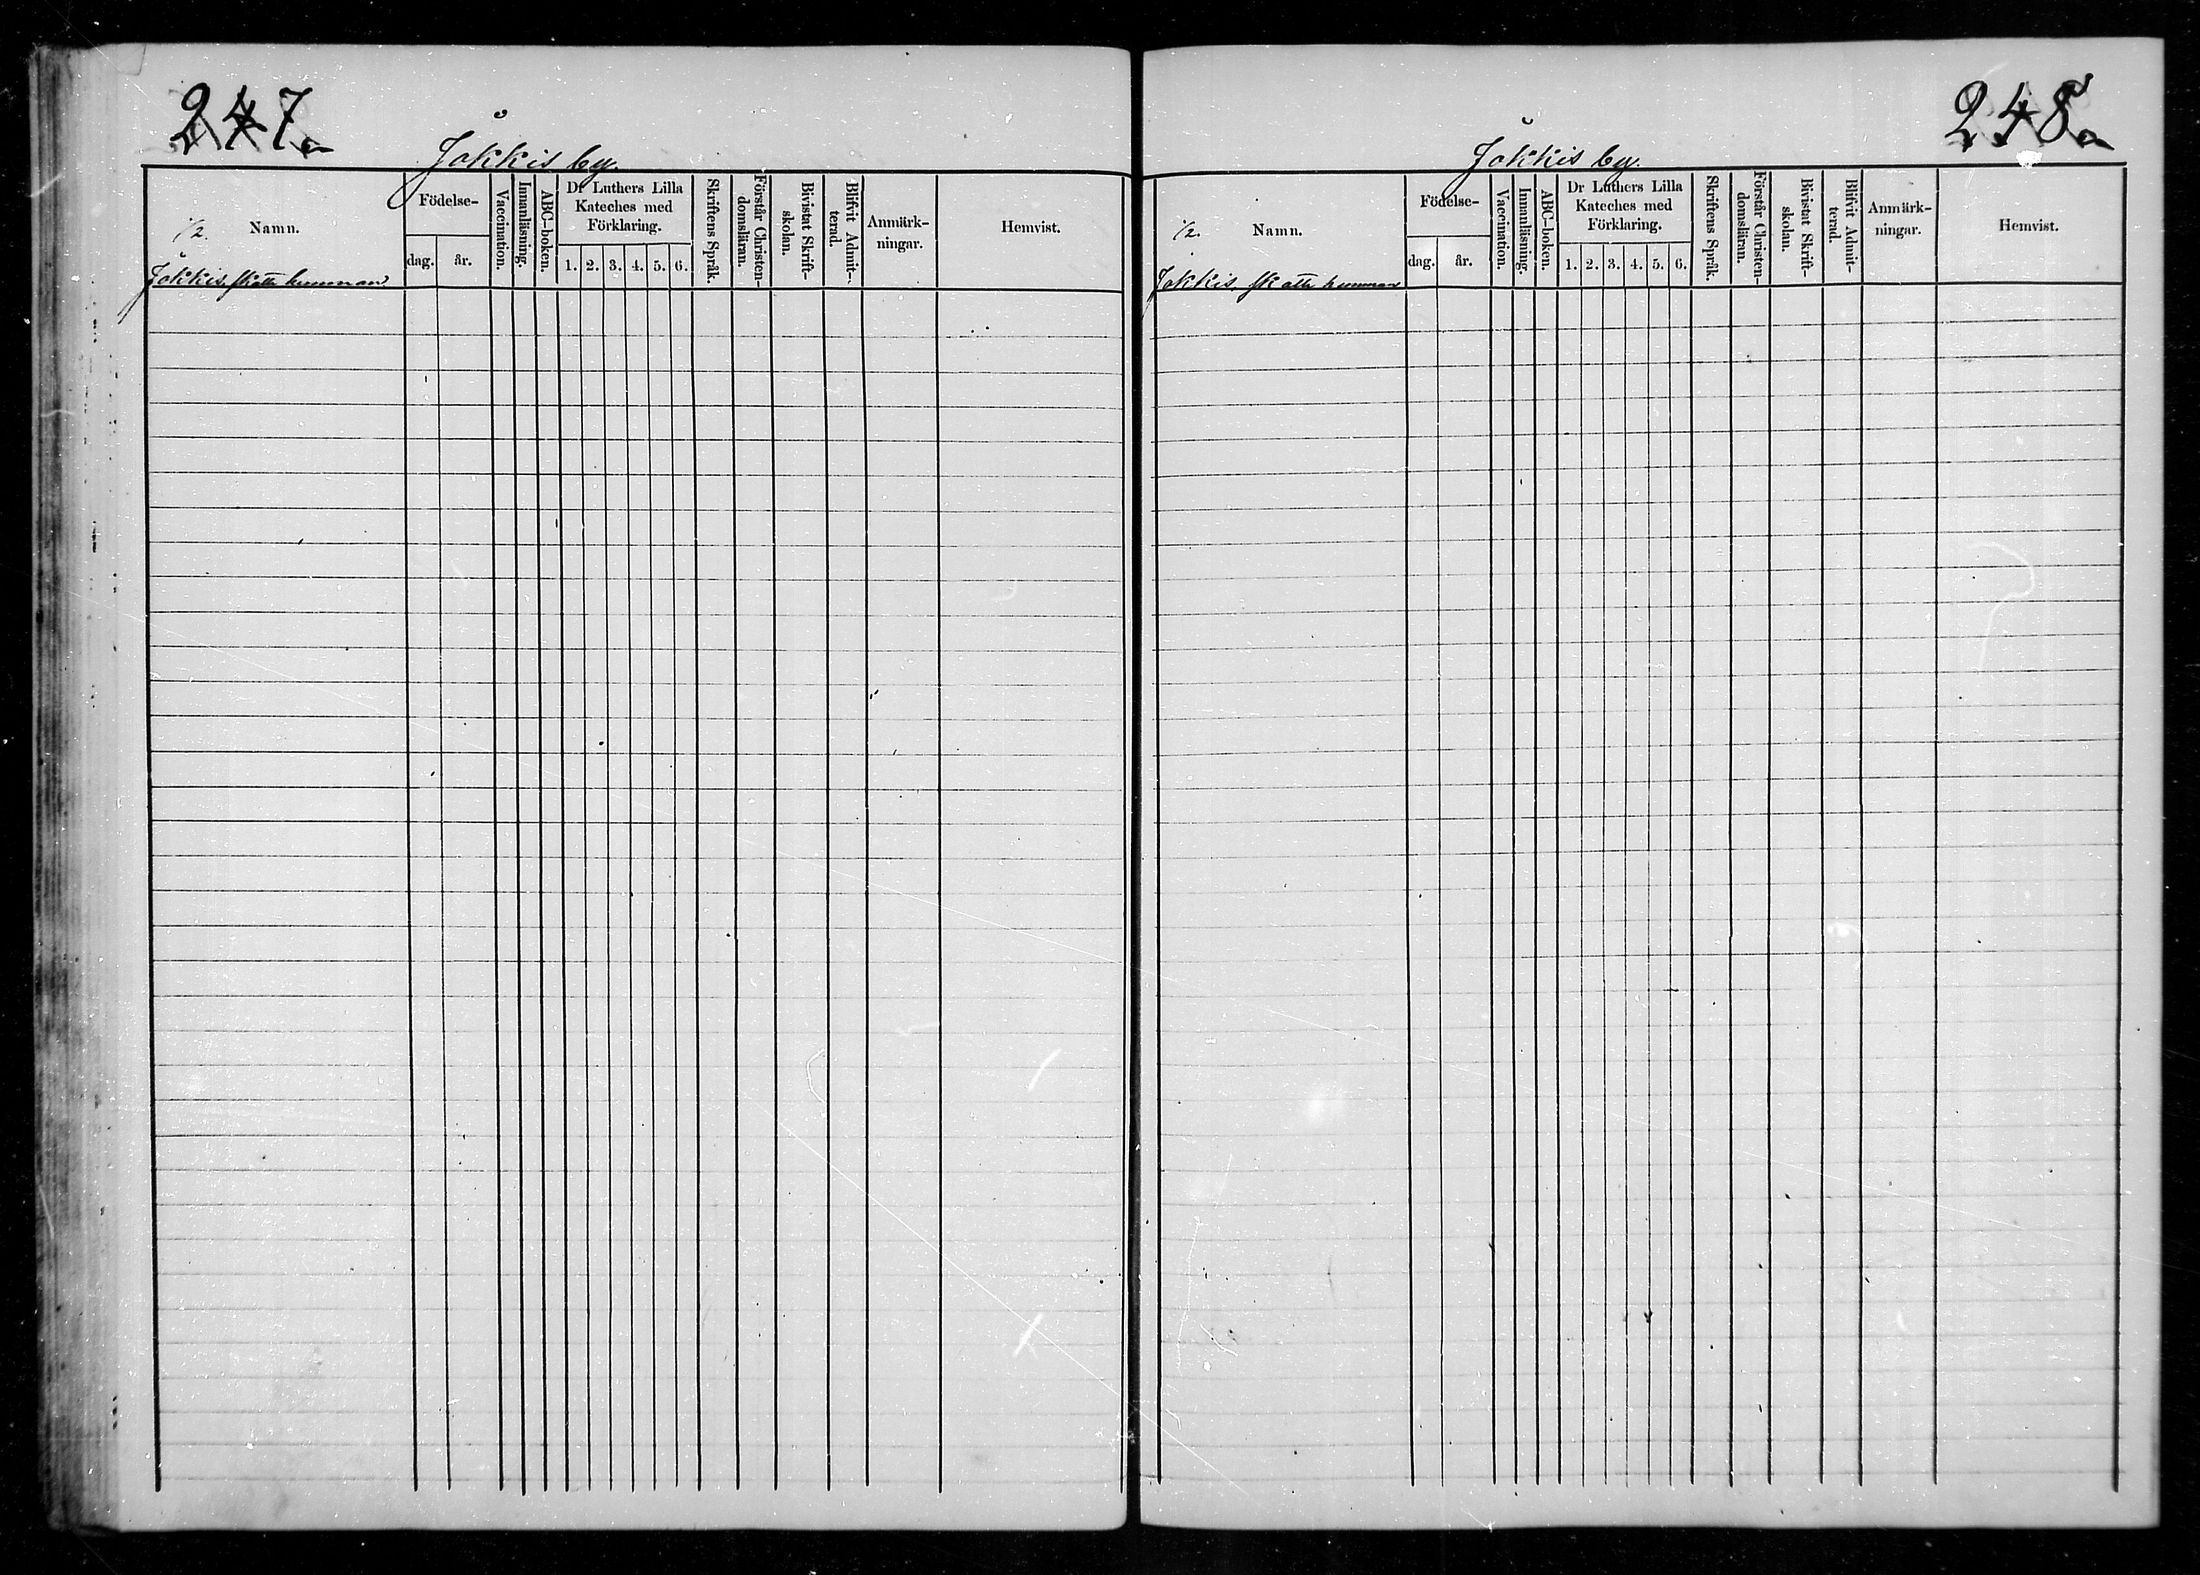 247.
Jokkis by.
½. Namn.
Födelse-
dag. år.
Vaccination.
Innanläsning.
ABC-boken.
Dr Luthers Lilla
Kateches med
Förklaring.
1. 2. 3. 4. 5. 6.
Skriftens Språk.
Förstår Christen-
domsläran.
Bivistat Skrift-
skolan.
Blifvit Admit-
terad.
Anmärk-
ningar.
Hemvist.
Jokkis, skatte hemman
248.
Jokkis by.
½. Namn.
Födelse-
dag. år.
Vaccination.
Innanläsning.
ABC-boken.
Dr Luthers Lilla
Kateches med
Förklaring.
1. 2. 3. 4. 5. 6.
Skriftens Språk.
Förstår Christen-
domsläran.
Bivistat Skrift-
skolan.
Blifvit Admit-
terad.
Anmärk-
ningar.
Hemvist.
Jokkis, skatte hemman